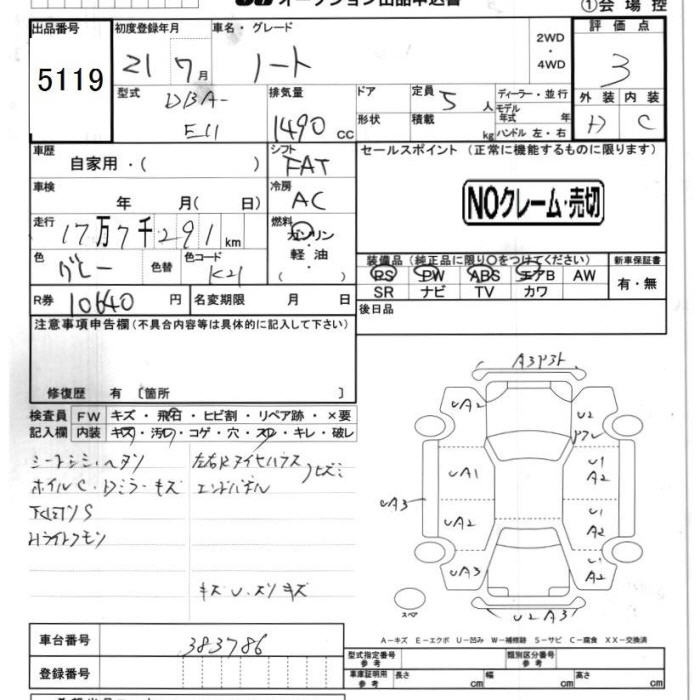 オークション出品申込書
①会場控
出品番号
5119
初度登録年月
21 7月
車名・グレード
ノート
2WD
・
4WD
評価点
3
型式
DBA-
E11
排気量
1490 CC
ドア
形状
定員 5 人
積載 kg
ディーラー・並行
モデル
年式 年
ハンドル 左・右
外装 内装
D C
車歴
自家用・( )
シフト
FAT
セールスポイント (正常に機能するものに限ります)
NOクレーム・売切
車検
年 月( 日)
冷房
AC
走行
17万7千291 km
燃料
ガソリン
・
軽油
・
( )
色
グレー
色替
色コード
K21
装備品 (純正品に限り○をつけてください)
PS PW ABS エアB AW
SR ナビ TV カワ
新車保証書
有・無
R券 10640 円
名変期限 月 日
後日品
注意事項申告欄(不具合内容等は具体的に記入して下さい)
修復歴 有 〔箇所 〕
検査員
記入欄
FW キズ・飛石・ヒビ割・リペア跡・×要
内装 キズ・汚レ・コゲ・穴・スレ・キレ・破レ
シートシミ・ヘタリ
ホイルC・Dミラーキズ
下回リS
Hライトクモリ
エンドパネル
キズU・スリキズ
A3
UA2
U2
UA1
U1
A2
UA3
UA2
U1
A2
UA3
U1
A2
U2 A3
スペア
A−キズ E−エクボ U−凹み W−補修跡 S−サビ C−腐食 XX−交換済
車台番号
383786
登録番号
型式指定番号
参考
類別区分番号
参考
車庫証明用
参考
長さ cm
幅 cm
高さ cm